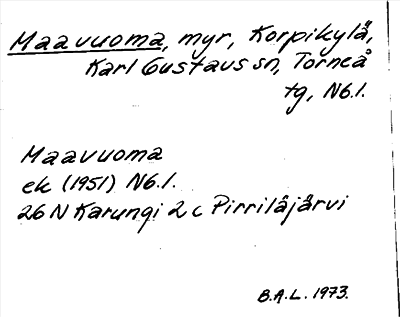 Maavuoma, myr, Korpikylä,
Karl Gustavs sn, Torneå
tg, Nb.l.
Maavuoma
ek (1951) Nb.l.
26 N Karungi 2 c Pirriläjärvi
B.A.L. 1973.